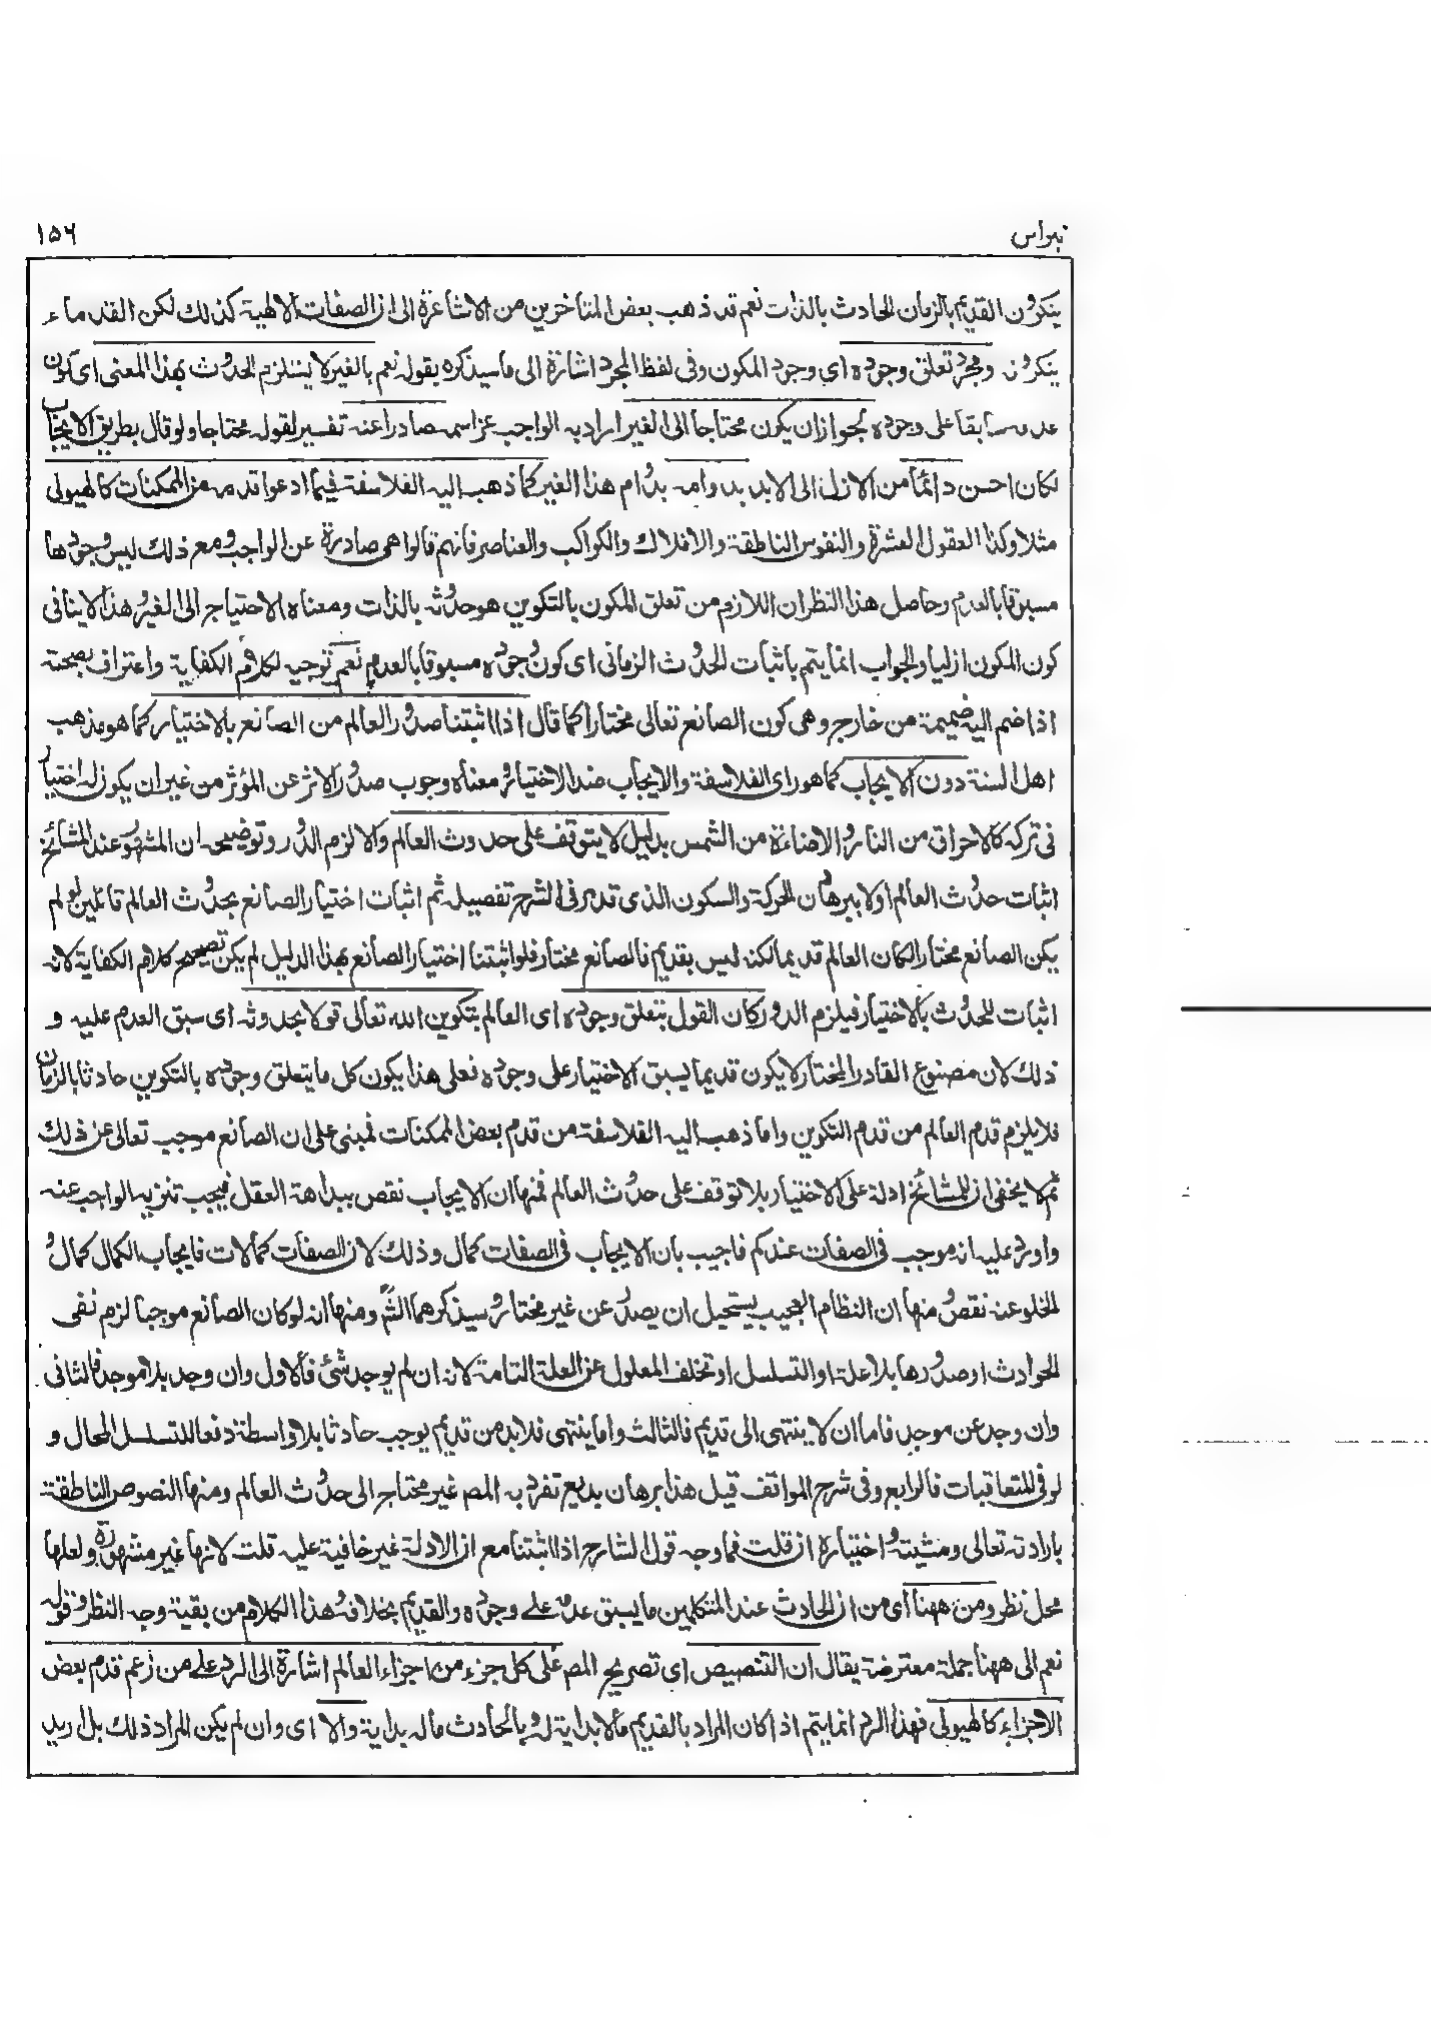 نبراس
١٥٦
ينكرون القديم بالزمان الحادث بالذات نعم قد ذهب بعض المتاخرين من الاشاعرة الى ان الصفات الالهية كذلك لكن القدماء
ينكرونه ومجرد تعلق وجوده اي وجود المكون وفي لفظ المجرد اشارة الى ما سيذكره بقوله نعم بالغير لا يستلزم الحدوث بهذا المعنى اى كون
عدمه سابقا على وجوده لجواز ان يكون محتاجا الى الغير اراد به الواجب عز اسمه صادرا عنه تفسير لقوله محتاجا ولو قال بطريق الايجاب
لكان احسن دائما من الازل الى الابد بدوامه بدوام هذا الغير كما ذهب اليه الفلاسفة فيما ادعوا قدمه من الممكنات كالهيولى
مثلا وكذا العقول العشرة والنفوس الناطقة والافلاك والكواكب والعناصر فانهم قالوا هي صادرة عن الواجب ومع ذلك ليس وجودها
مسبوقا بالعدم وحاصل هذا النظر ان اللازم من تعلق المكون بالتكوين هو حدوثه بالذات ومعناه الاحتياج الى الغير وهذا لا ينافى
كون المكون ازليا والجواب انما يتم باثبات الحدوث الزمانى اى كون وجوده مسبوقا بالعدم نعم توجيه لكلام الكفاية واعتراف بصحته
اذا ضم اليه ضميمة من خارج وهى كون الصانع تعالى مختارا كما قال اذا اثبتنا صدور العالم من الصانع بالاختيار كما هو مذهب
اهل السنة دون الايجاب كما هو راى الفلاسفة والايجاب ضد الاختيار ومعناه وجوب صدور الاثر عن المؤثر من غير ان يكون له اختيار
فى تركه كالاحراق من النار والاضاءة من الشمس بدليل لا يتوقف على حدوث العالم والا لزم الدور وتوضيحه ان المشهور عند المشائخ
اثبات حدوث العالم اولا ببرهان الحركة والسكون الذى قد مر فى الشرح تفصيله ثم اثبات اختيار الصانع بحدوث العالم قائلين لو لم
يكن الصانع مختارا لكان العالم قديما لكنه ليس بقديم فالصانع مختار فلو اثبتنا اختيار الصانع بهذا الدليل لم يكن تصحيح كلام الكفاية لانه
اثبات للحدوث بالاختيار فيلزم الدور كان القول بتعلق وجوده اى العالم بتكوين الله تعالى قولا بحدوثه اى سبق العدم عليه و
ذلك لان مصنوع القادر المختار لا يكون قديما لسبق الاختيار على وجوده فعلى هذا يكون كل ما يتعلق وجوده بالتكوين حادثا بالزمان
فلا يلزم قدم العالم من قدم التكوين واما ذهب اليه الفلاسفة من قدم بعض الممكنات فمبنى على ان الصانع موجب تعالى عن ذلك
ثم لا يخفى ان للمشائخ ادلة على الاختيار بلا توقف على حدوث العالم فمنها ان الايجاب نقص ببداهة العقل فيجب تنزيه الواجب عنه
واورد عليه انه موجب فى الصفات عندكم فاجيب بان الايجاب فى الصفات كمال وذلك لان الصفات كمالات فايجاب الكمال كمال و
الخلو عنه نقص ومنها ان النظام العجيب يستحيل ان يصدر عن غير مختار وسيذكرهما الش ومنها انه لو كان الصانع موجبا لزم نفى
الحوادث او صدورها بلا علة او التسلسل او تخلف المعلول عن العلة التامة لانه ان لم يوجد شئ فالاول وان وجد بلا موجد فالثانى
وان وجد عن موجد فاما ان لا ينتهى الى قديم فالثالث واما ينتهى فلابد من قديم يوجب حادثا بلا واسطة دفعا للتسلسل المحال و
لو فى المتعاقبات فالرابع وفى شرح المواقف قيل هذا برهان بديع تفرد به المص غير محتاج الى حدوث العالم ومنها النصوص الناطقة
بارادته تعالى ومشيته واختياره ان قلت فما وجه قول الشارح اذا اثبتنا مع ان الادلة غير خافية عليه قلت لانها غير مشهورة ولعلها
محل نظر ومن ههنا اى من ان الحادث عند المتكلمين ما يسبق عدمه على وجوده والقديم بخلافه وهذا الكلام من بقية وجه النظر وقوله
نعم الى ههنا جملة معترضة يقال ان التنصيص اى تصريح المص على كل جزء من اجزاء العالم اشارة الى الرد على من زعم قدم بعض
الاجزاء كالهيولى فهذا الرد انما يتم اذا كان المراد بالقديم ما لا بداية له وبالحادث ما له بداية والا اى وان لم يكن المراد ذلك بل اريد